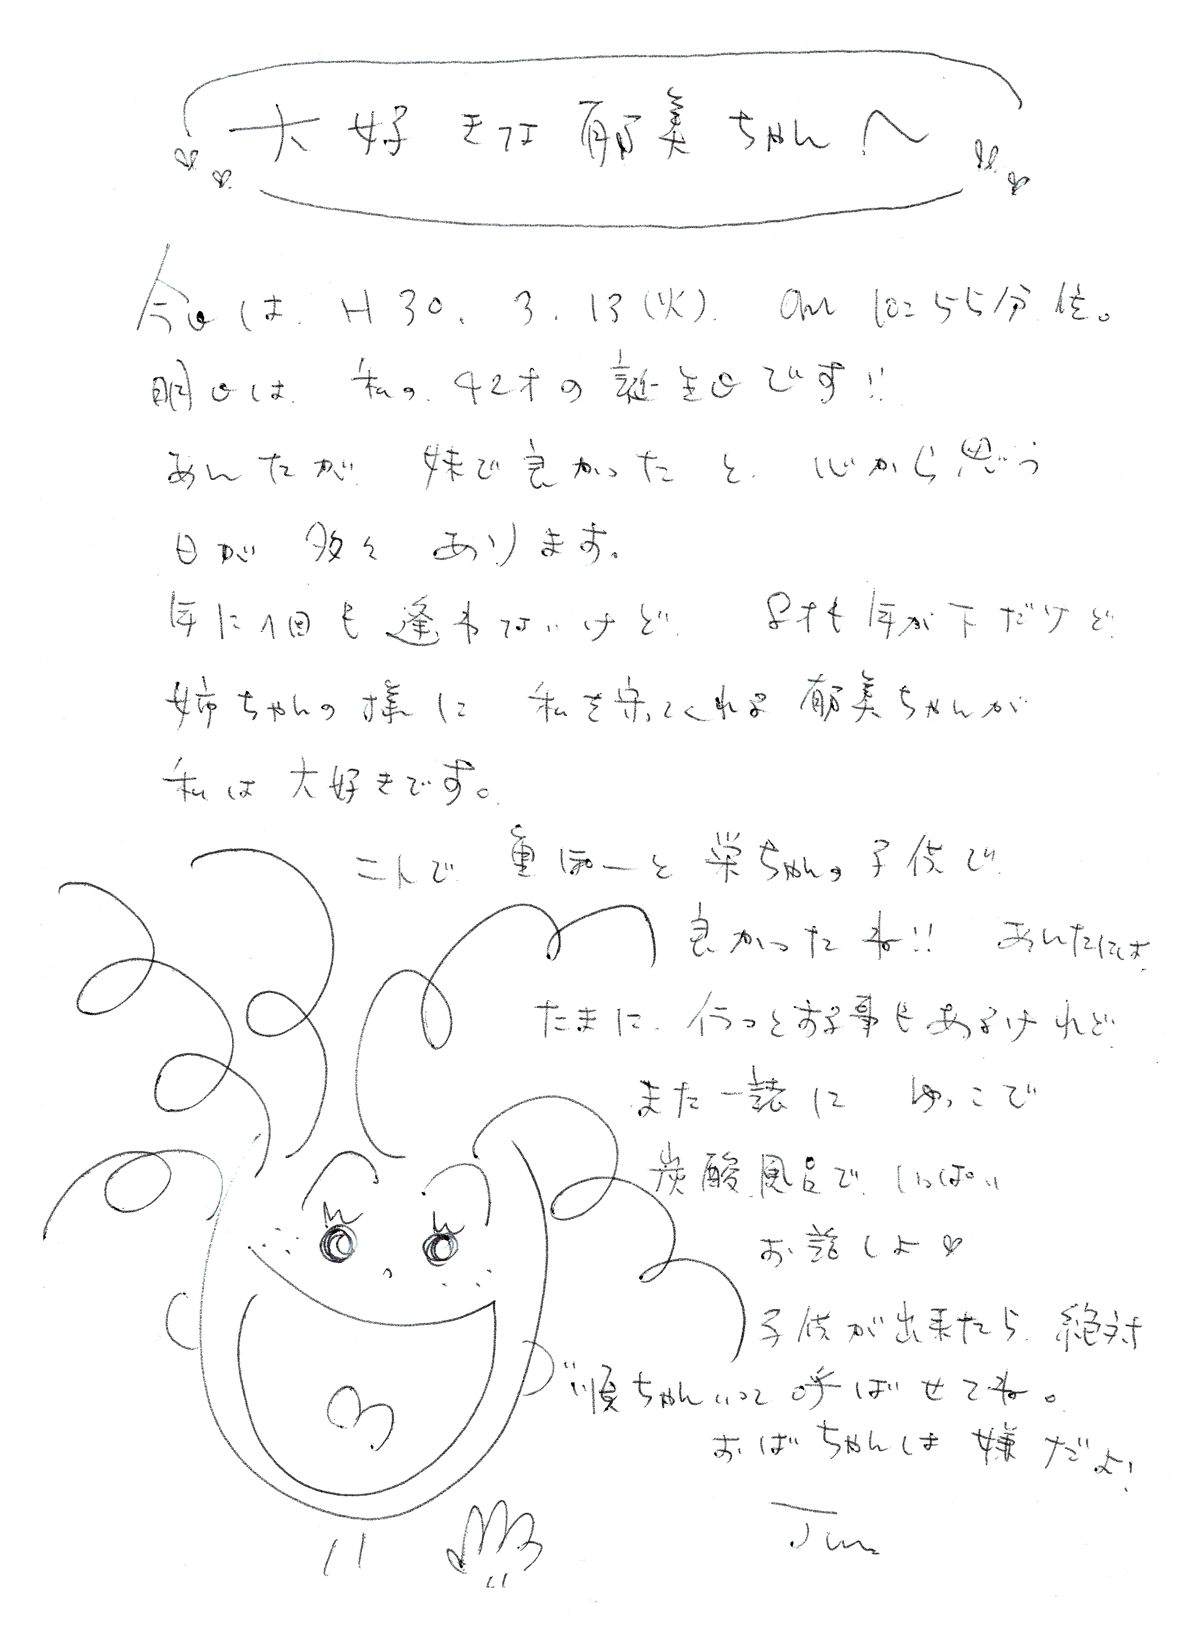 大好きな郁美ちゃんへ
今日は、H30. 3. 13(火). am 10:55分位。
明日は、私の、42才の誕生日です!!
あんたが、妹で良かったと、心から思う
日が多々あります。
年に1回も逢わないけど、8才も年が下だけど
姉ちゃんの様に私を守ってくれる郁美ちゃんが
私は大好きです。
重ぼーと栄ちゃんの子供で
良かったね!! あんたには
たまに、イラっとする事もあるけれど
また一諸に ゆっこで
炭酸風呂で、いっぱい
お話しよ♡
子供が出来たら、絶対
"順ちゃん"って呼ばせてね。
おばちゃんは嫌だよ!
Jun